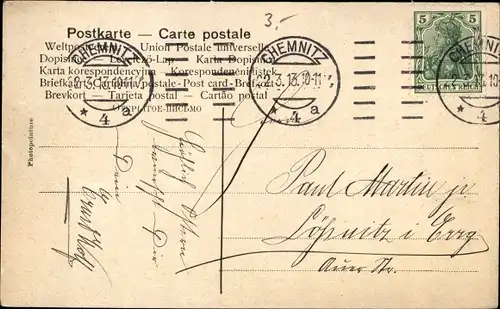 3.-
Postkarte — Carte postale
Weltpostverein Union Postale universelle
Dopisnice Levelező-Lap Karta Dopisna
Karta korespondencyjna Korespondenční lístek
Briefkaart Cartolina postale Post card Brefkort
Brevkort — Tarjeta postal — Cartão postal
ОТКРЫТОЕ ПИСЬМО
CHEMNITZ
22.3.13.10-11
* 4 a
CHEMNITZ
* 4
5 5
DEUTSCHES REICH
Photopeinture
Fröhliche Ostern
wünscht Dir
Dein
Paul Martin jr
Lößnitz i Erzg
Auer Str.